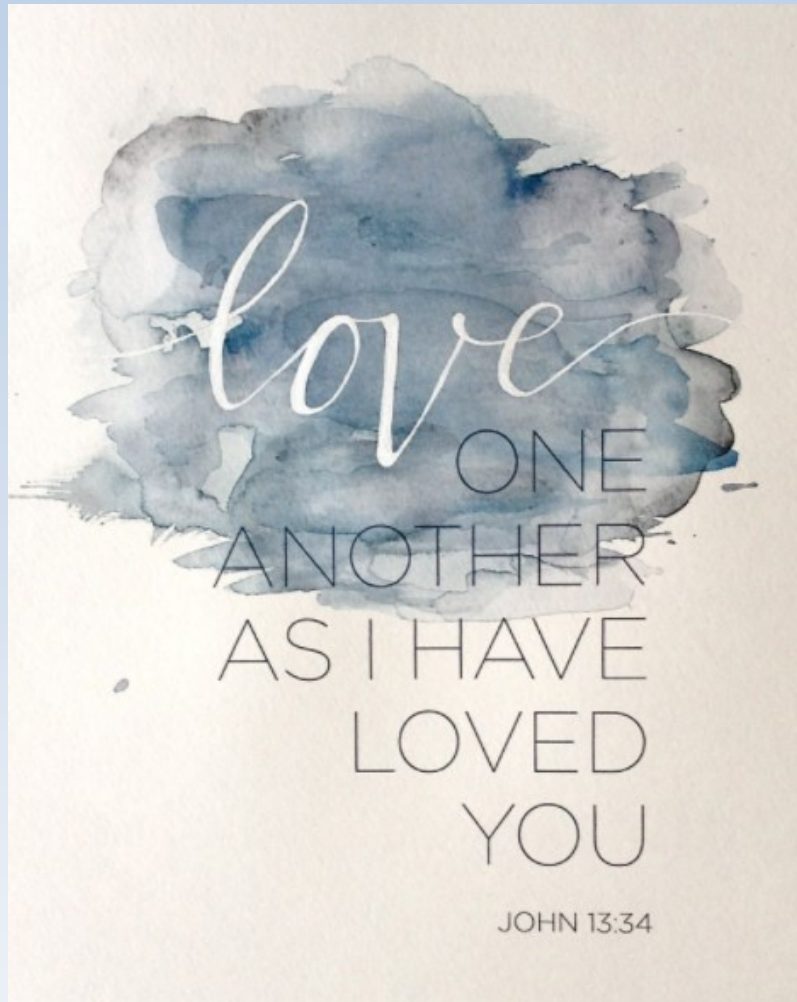 love
ONE
ANOTHER
AS I HAVE
LOVED
YOU
JOHN 13:34